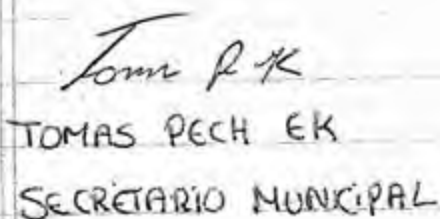 Tom P K
TOMAS PECH EK
SECRETARIO MUNICIPAL